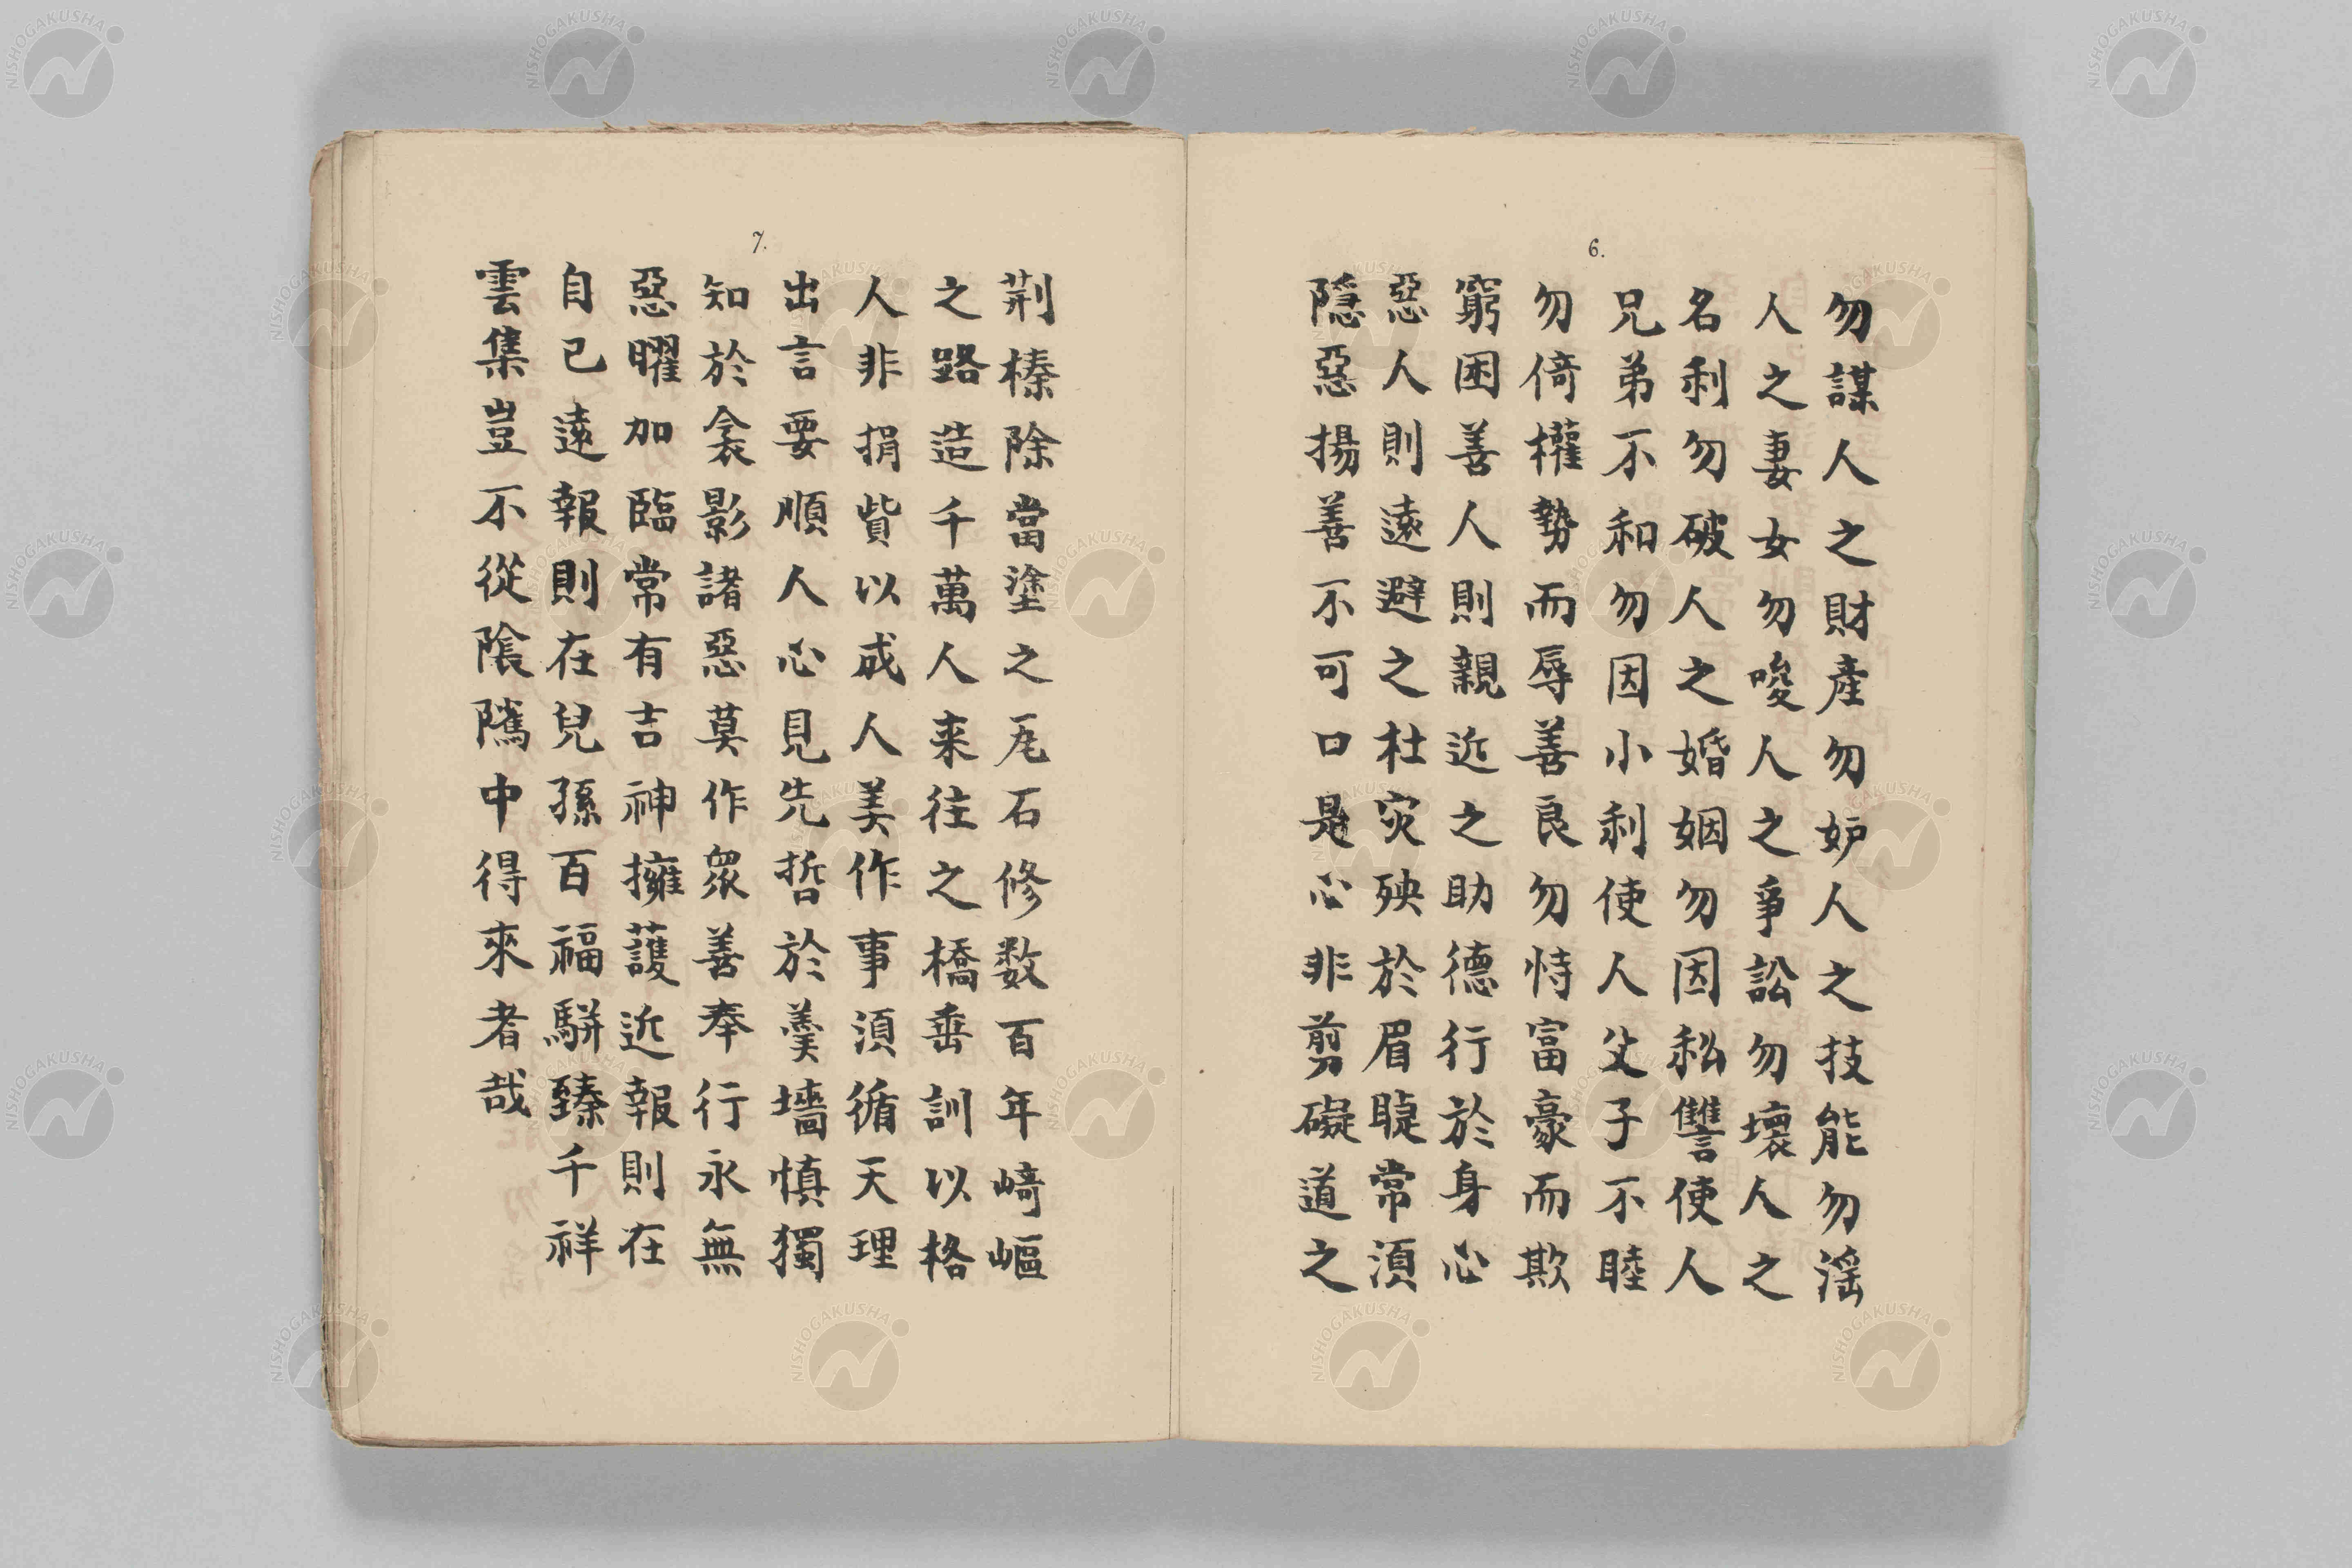 6.
勿謀人之財產勿妒人之技能勿淫
人之妻女勿唆人之爭訟勿壞人之
名利勿破人之婚姻勿因私讐使人
兄弟不和勿因小利使人父子不睦
勿倚權勢而辱善良勿恃富豪而欺
窮困善人則親近之助德行於身心
惡人則遠避之杜灾殃於眉睫常須
隱惡揚善不可口是心非剪礙道之
7.
荆榛除當塗之瓦石修數百年崎嶇
之路造千萬人来往之橋垂訓以格
人非捐貲以成人美作事須循天理
出言要順人心見先哲於羹墻慎獨
知於衾影諸惡莫作衆善奉行永無
惡曜加臨常有吉神擁護近報則在
自己遠報則在兒孫百福駢臻千祥
雲集豈不從陰隲中得來者哉
NISHOGAKUSHA